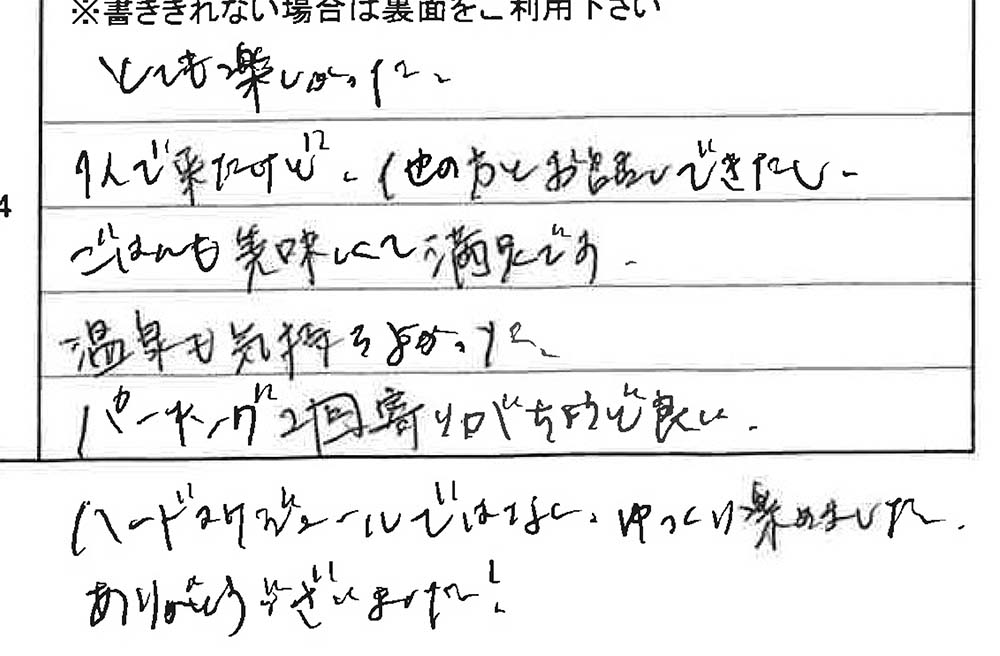 ※書ききれない場合は裏面をご利用下さい
とても楽しかった、
4
1人で来たけど、他の方とお話しできたし、
ごはんも美味しくて満足です。
温泉も気持ちよかった、
パーキング2回寄りが
良い。
ハードスケジュールではなく、ゆっくり楽めました。
ありがとうございました!